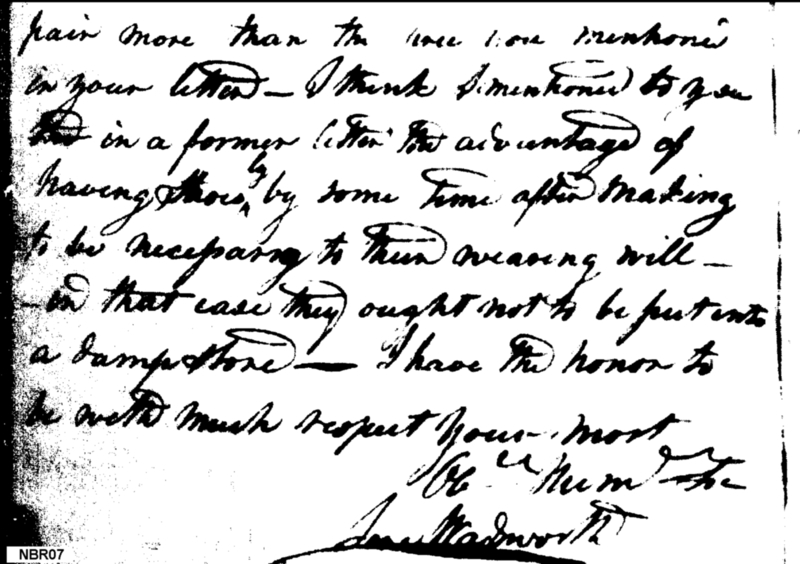 pair more than the mentioned
in your letter – I think I mentioned to you
in a former letter the advantage of
having shoes ly by some time after making
to be necessary to their wearing well –
– in that case they ought not to be put into
a damp store – I have the honor to
be with much respect your most
Ob Hum
Wadsworth
NBR07